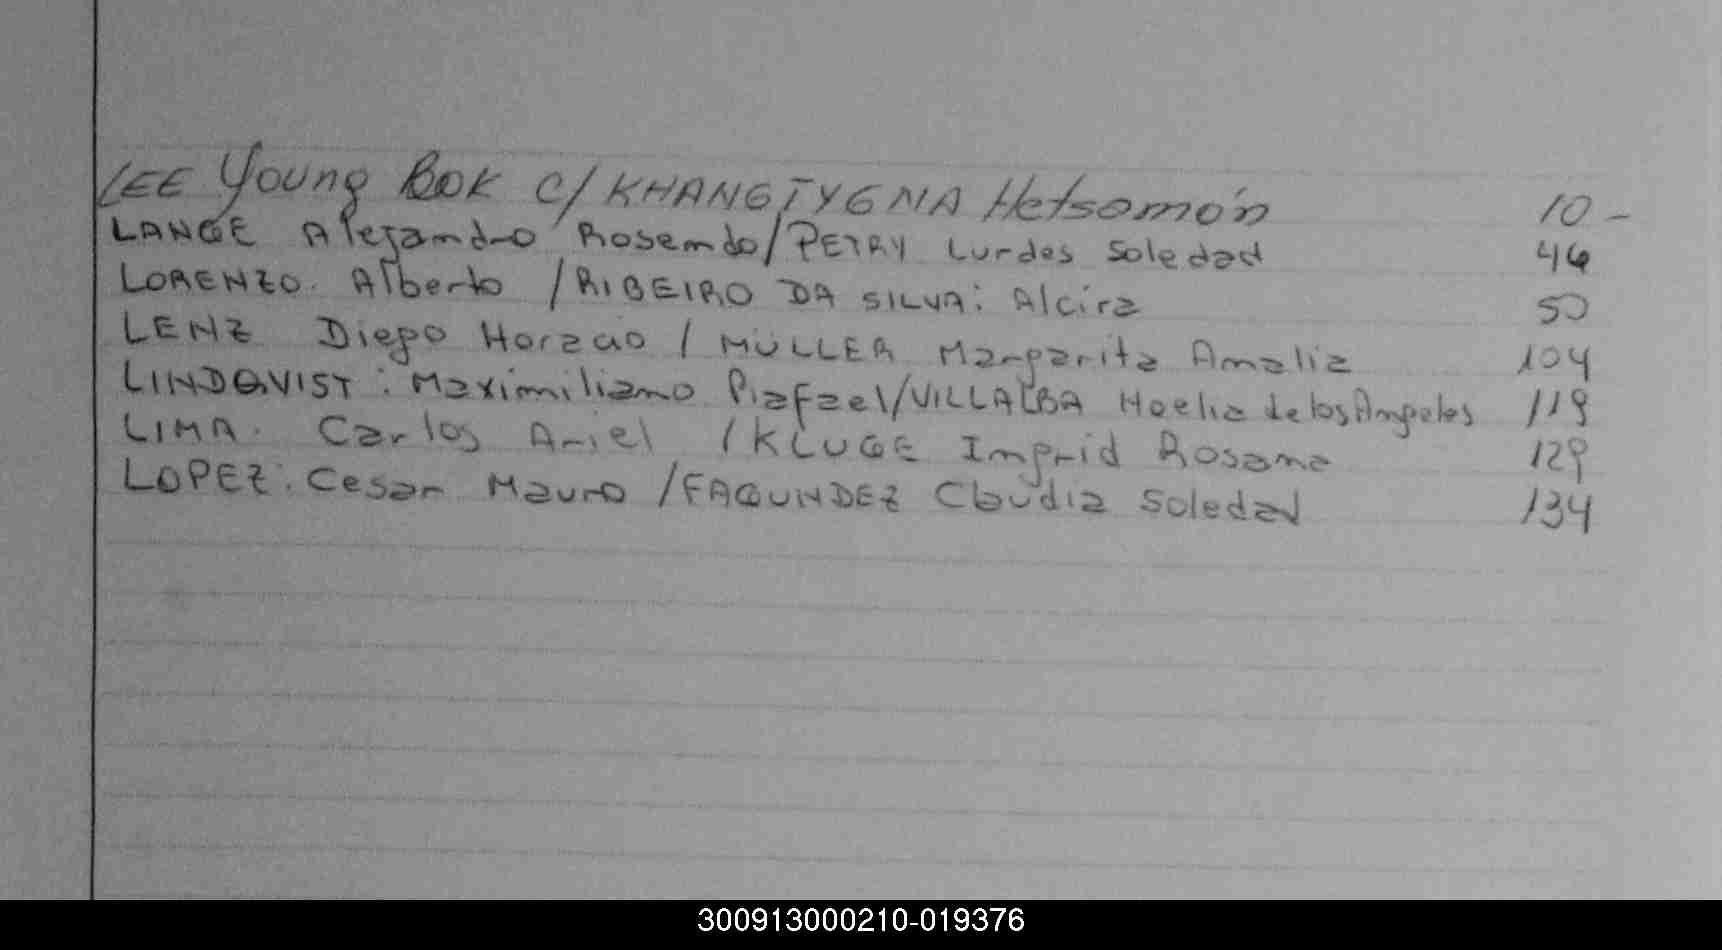 LEE Young BOK c/ KHANGTYGNA Hetsomón 10 -
LANGE Alejandro Rosendo / PETRY Lurdes Soledad 46
LORENZO. Alberto / RIBEIRO DA SILVA: Alcira 50
LENZ Diego Horacio / MÜLLER Margarita Amalia 104
LINDQVIST: Maximiliano Rafael / VILLALBA Noelia de los Angeles 119
LIMA. Carlos Ariel / KLUGE Ingrid Rosana 129
LOPEZ: Cesar Mauro / FAGUNDEZ Claudia Soledad 134
300913000210-019376